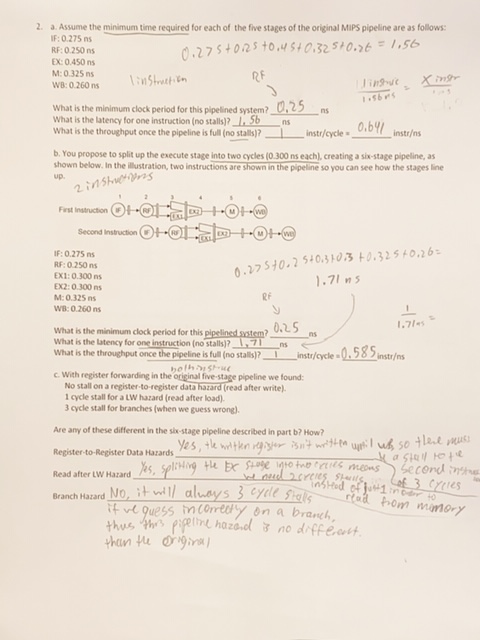 2. a. Assume the minimum time required for each of the five stages of the original MIPS pipeline are as follows:
IF: 0.275 ns
RF: 0.250 ns
EX: 0.450 ns
M: 0.325 ns
WB: 0.260 ns
0.275+0.25+0.45+0.325+0.26 = 1.56
1 instruction
RF
What is the minimum clock period for this pipelined system? 0.25 ns
What is the latency for one instruction (no stalls)? 1.56 ns
What is the throughput once the pipeline is full (no stalls)? 1 instr/cycle = 0.641 instr/ns
b. You propose to split up the execute stage into two cycles (0.300 ns each), creating a six-stage pipeline, as
shown below. In the illustration, two instructions are shown in the pipeline so you can see how the stages line
up.
2 instructions
1 2 3 4 5 6
First Instruction IF RF EX1 EX2 M WB
Second Instruction IF RF EX1 EX2 M WB
IF: 0.275 ns
RF: 0.250 ns
EX1: 0.300 ns
EX2: 0.300 ns
M: 0.325 ns
WB: 0.260 ns
0.275+0.25+0.3+0.3+0.325+0.26=
1.71 ns
RF
What is the minimum clock period for this pipelined system? 0.25 ns
What is the latency for one instruction (no stalls)? 1.71 ns
What is the throughput once the pipeline is full (no stalls)? 1 instr/cycle = 0.585 instr/ns
c. With register forwarding in the original five-stage pipeline we found:
No stall on a register-to-register data hazard (read after write).
1 cycle stall for a LW hazard (read after load).
3 cycle stall for branches (when we guess wrong).
Are any of these different in the six-stage pipeline described in part b? How?
Register-to-Register Data Hazards Yes, the written register isn't written until WB so there must
be a stall to the
second
of 3 cycles
Read after LW Hazard Yes, splitting the EX stage into two cycles means
we need 2 cycles stalls
instead of just 1 in order to
read from memory
Branch Hazard No, it will always 3 cycle stalls
if we guess incorrectly on a branch,
thus this pipeline hazard is no different
than the original